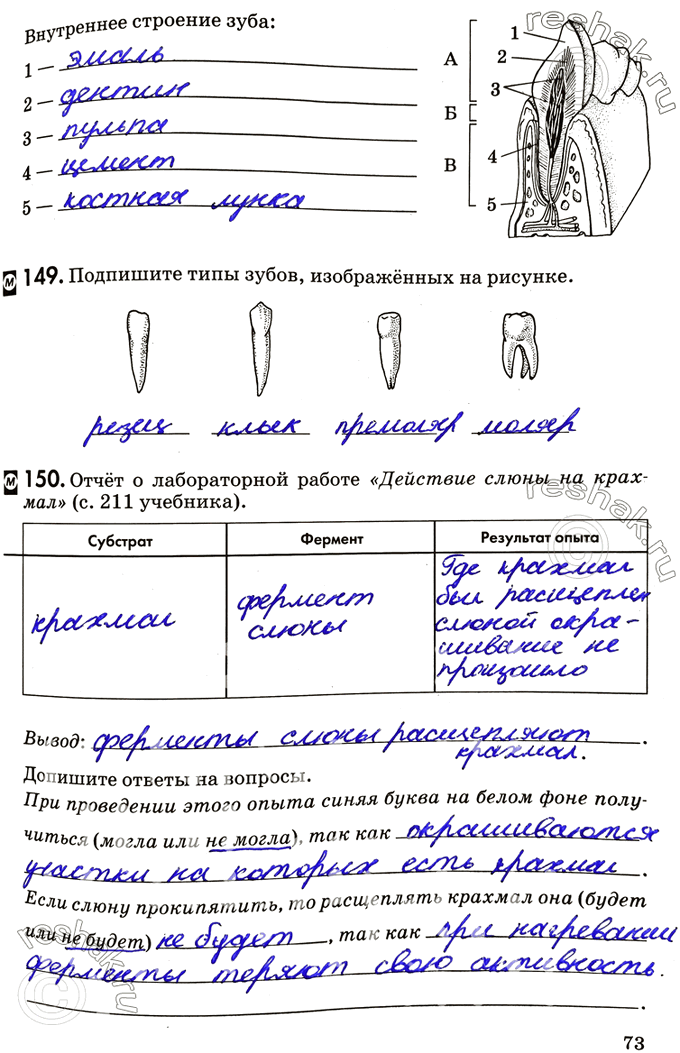 Внутреннее строение зуба:
1 — эмаль
2 — дентин
3 — пульпа
4 — цемент
5 — костная лунка
А
Б
В
1
2
3
4
5
reshak.ru
М 149. Подпишите типы зубов, изображённых на рисунке.
резец клык премоляр моляр
М 150. Отчёт о лабораторной работе «Действие слюны на крах-
мал» (с. 211 учебника).
reshak.ru
Субстрат Фермент Результат опыта
крахмал
фермент
слюны
Где крахмал
был расщеплен
слюной окра-
шивание не
произошло
Вывод: ферменты слюны расщепляют
крахмал.
Допишите ответы на вопросы.
При проведении этого опыта синяя буква на белом фоне полу-
читься (могла или не могла), так как окрашиваются
участки на которых есть крахмал.
Если слюну прокипятить, то расщеплять крахмал она (будет
или не будет) не будет, так как при нагревании
ферменты теряют свою активность.
reshak.ru
73